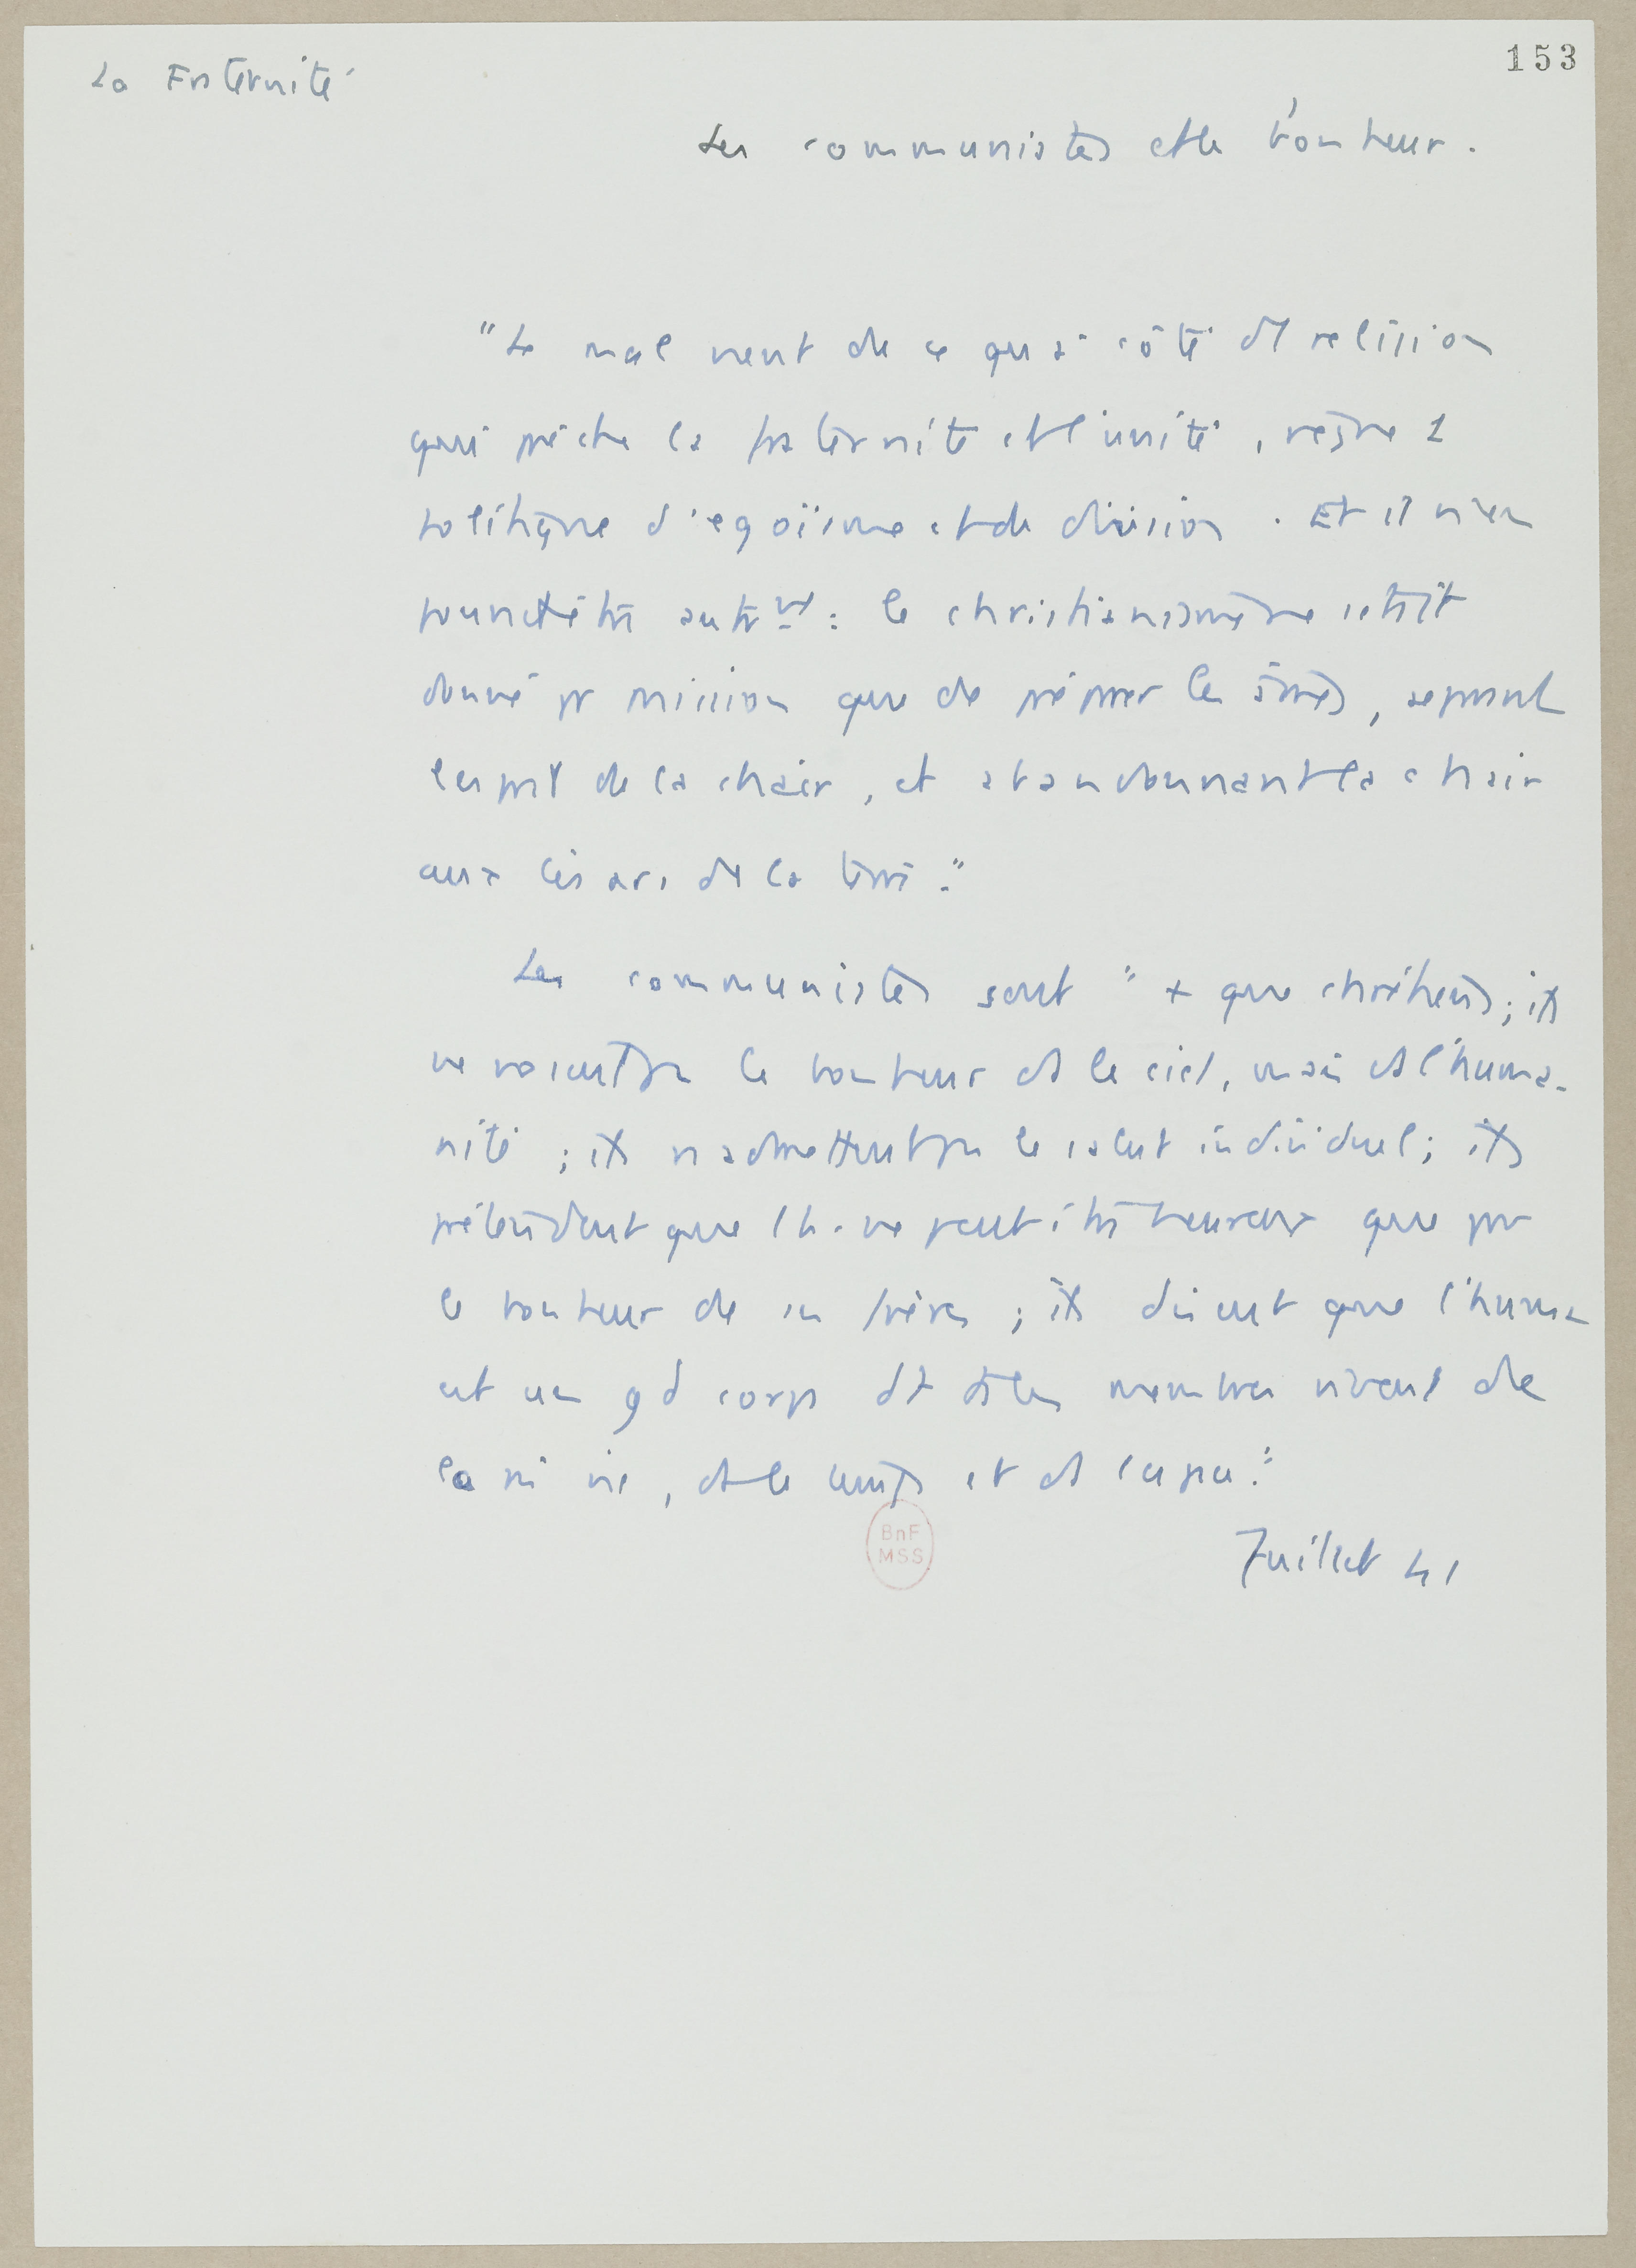 La Fraternité
153
Les communistes et le bonheur.
"Le mal vient de ce qu'à côté d'1 religion
qui prêche la fraternité et l'unité, règne 1
politique d'egoïsme et de division. Et il n'en
peut être autrt : le christianisme ne s'était
donné pr mission que de préparer les âmes, séparant
l'esprit de la chair, et abandonnant la chair
aux Césars de la terre."
Les communistes sont "+ que chrétiens ; ils
ne voient pas le bonheur ds le ciel, mais ds l'huma-
nité ; ils n'admettent pas le salut individuel ; ils
prétendent que l'h. ne peut être heureux que par
le bonheur de ses frères ; ils disent que l'huma
est un gd corps dt ts les membres vivent de
la m vie, ds le temps et ds l'espace."
BnF
MSS
Juillet 41